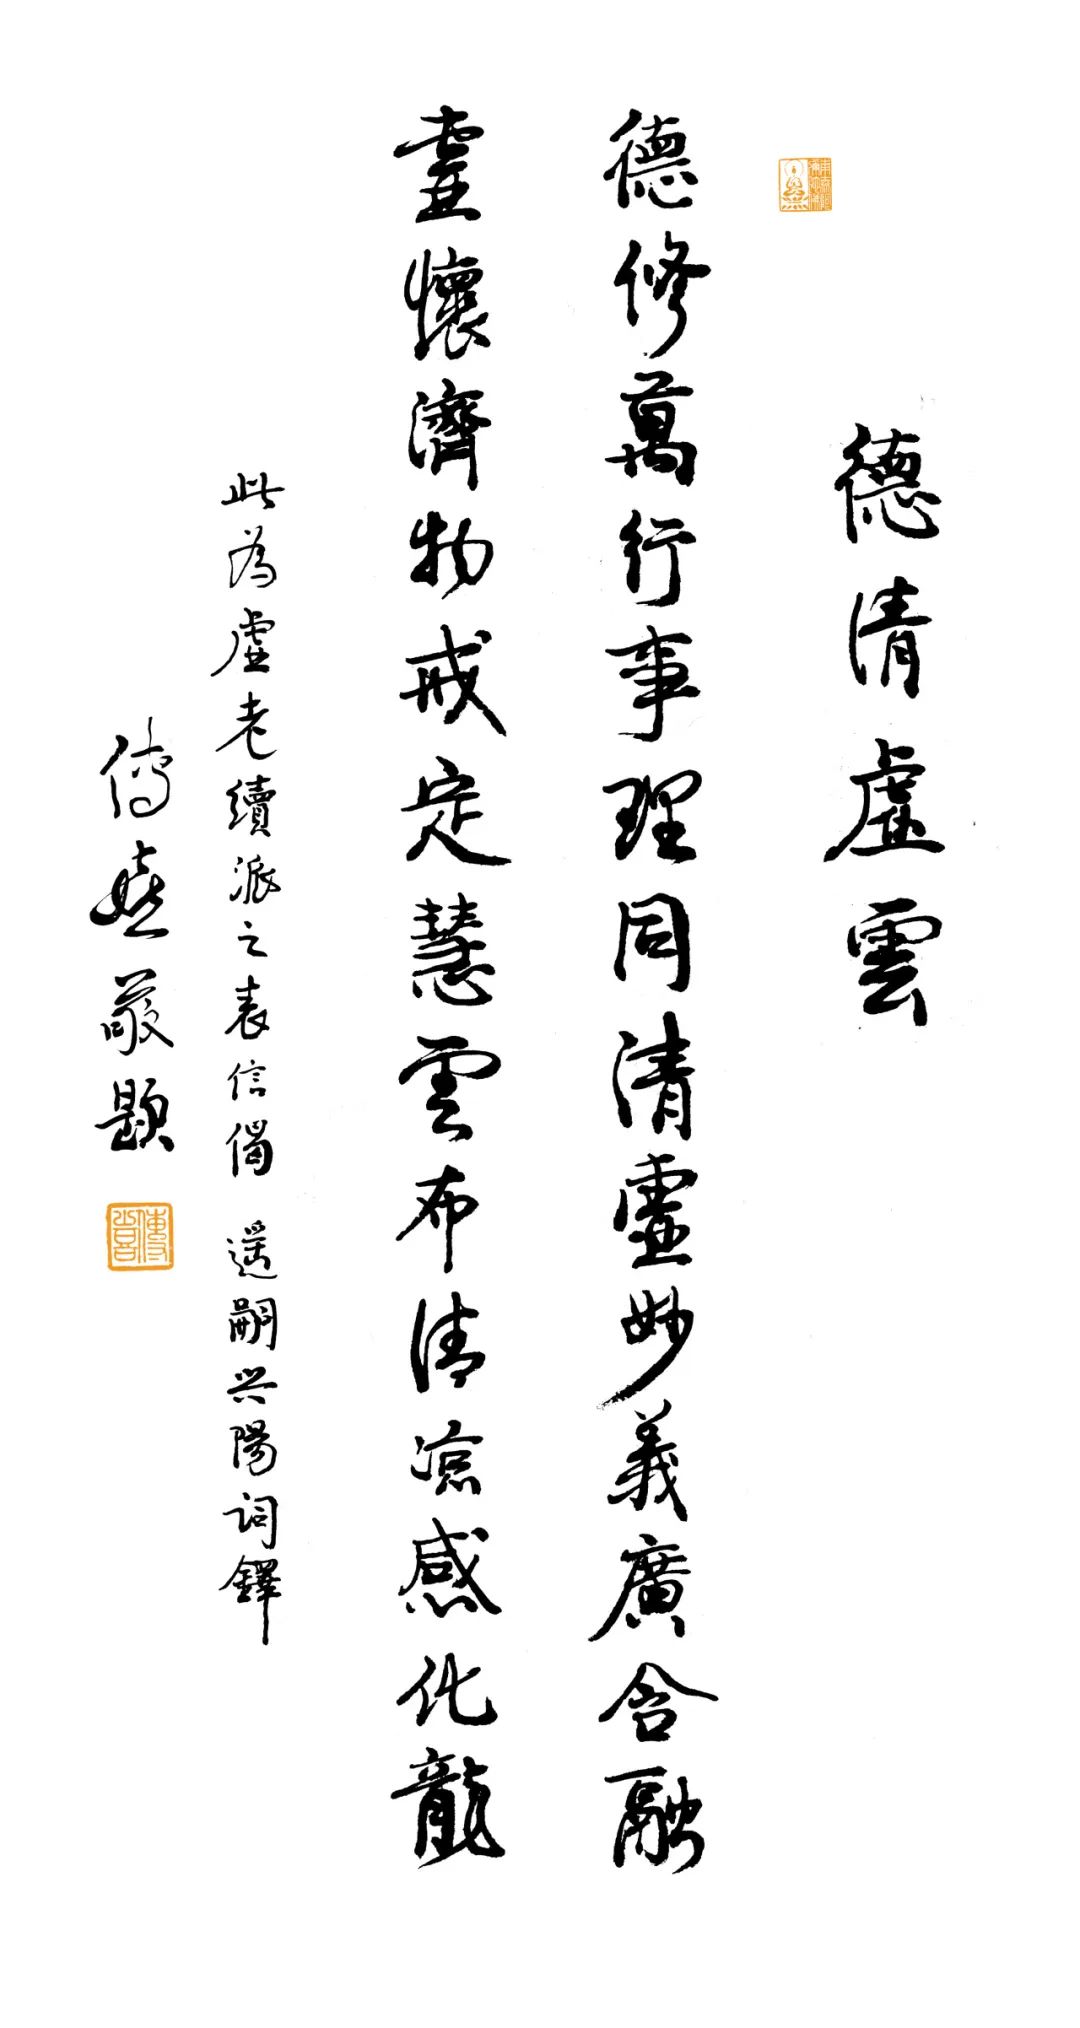 德清虛雲
德修萬行事理同清虛妙義廣含融
虛懷濟物戒定慧雲布清凉感化龍
此為虛老續派之表信偈 遥嗣兴陽詞鐸
傳喜敬題
傳喜